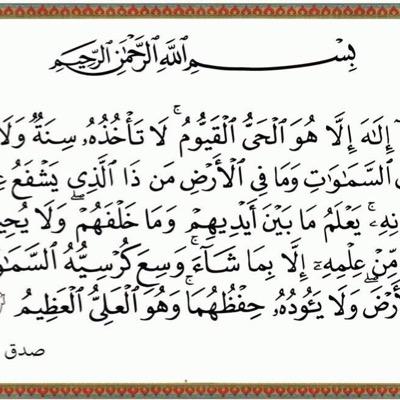 بِسْمِ اللَّهِ الرَّحْمَٰنِ الرَّحِيمِ
إِلَٰهَ إِلَّا هُوَ الْحَيُّ الْقَيُّومُ ۚ لَا تَأْخُذُهُۥ سِنَةٌ وَلَا
السَّمَٰوَٰتِ وَمَا فِي الْأَرْضِ مَن ذَا الَّذِي يَشْفَعُ
يَعْلَمُ مَا بَيْنَ أَيْدِيهِمْ وَمَا خَلْفَهُمْ ۖ وَلَا
مِّنْ عِلْمِهِۦٓ إِلَّا بِمَا شَآءَ ۚ وَسِعَ كُرْسِيُّهُ
وَلَا يَـُٔودُهُۥ حِفْظُهُمَا ۚ وَهُوَ الْعَلِيُّ الْعَظِيمُ
صدق